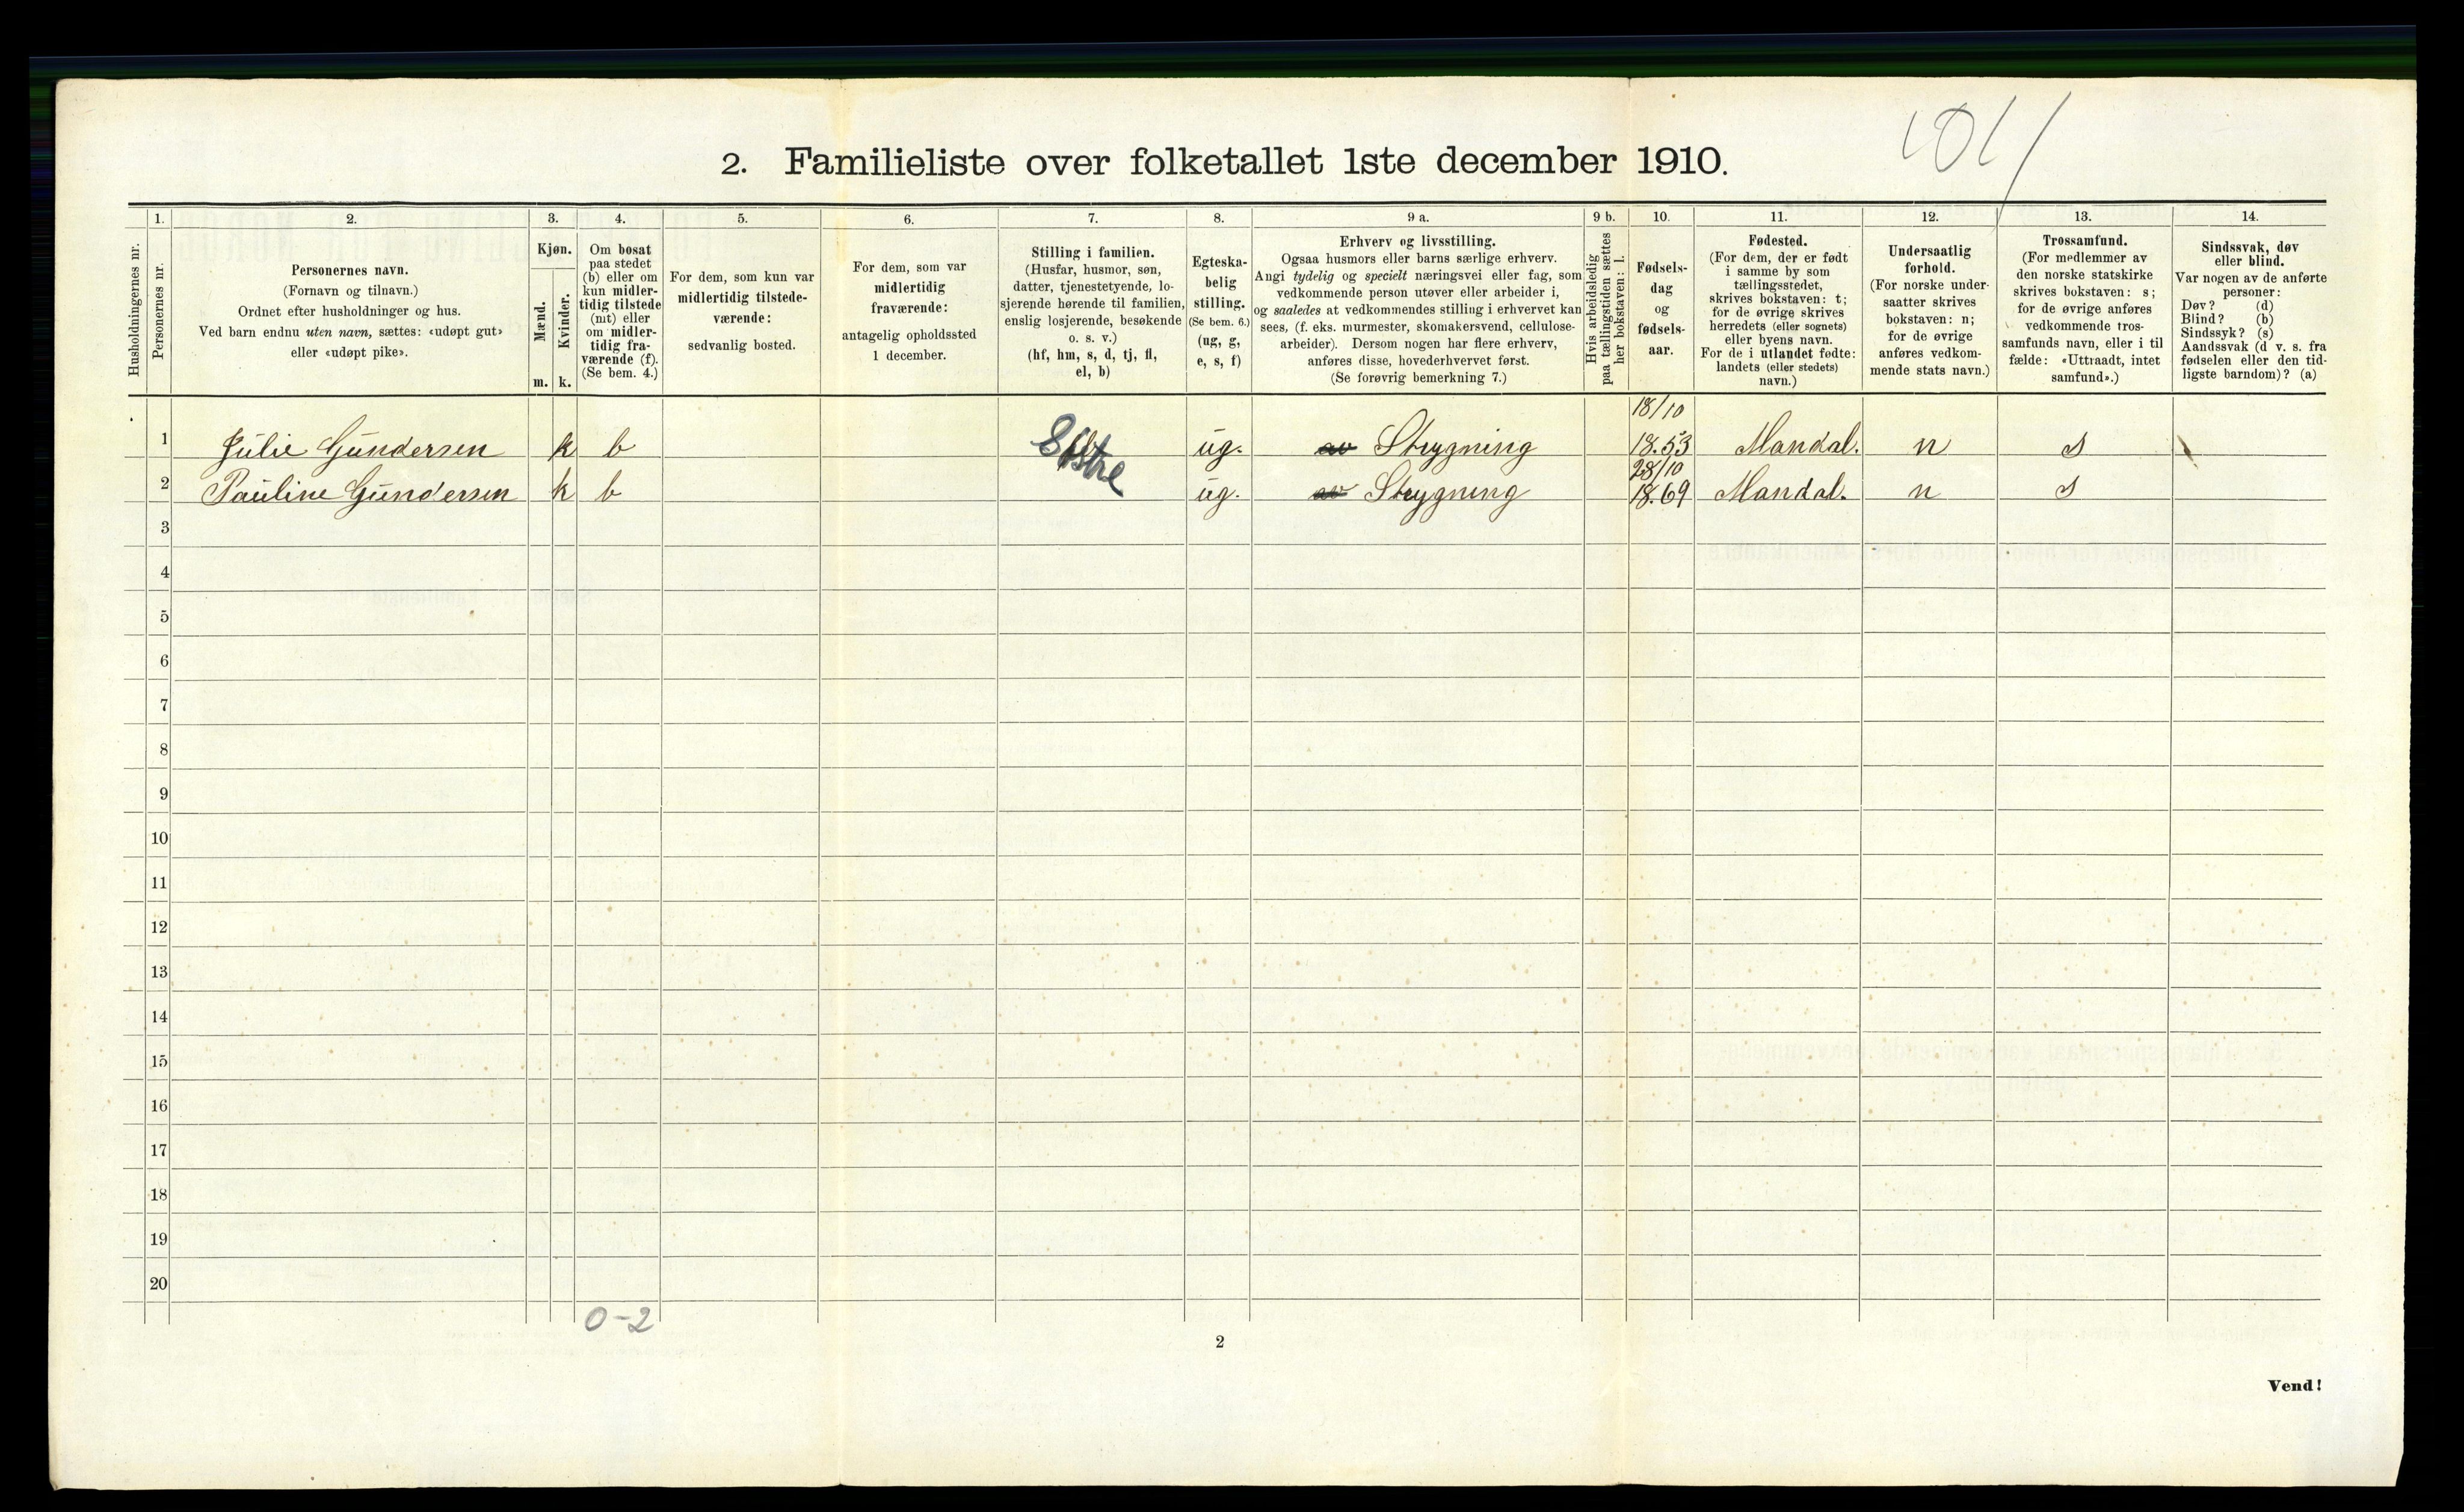 2. Familieliste over folketallet 1ste december 1910.
1. 2. 3. 4. 5. 6. 7. 8. 9 a. 9 b. 10. 11. 12. 13. 14.
Husholdningernes nr.
Personernes nr.
Personernes navn.
(Fornavn og tilnavn.)
Ordnet efter husholdninger og hus.
Ved barn endnu uten navn, sættes: «udøpt gut»
eller «udøpt pike».
Kjøn.
Mænd.
Kvinder.
m. k.
Om bosat
paa stedet
(b) eller om
kun midler-
tidig tilstede
(mt) eller
om midler-
tidig fra-
værende (f).
(Se bem. 4.)
For dem, som kun var
midlertidig tilstede-
værende:
sedvanlig bosted.
For dem, som var
midlertidig
fraværende:
antagelig opholdssted
1 december.
Stilling i familien.
(Husfar, husmor, søn,
datter, tjenestetyende, lo-
sjerende hørende til familien,
enslig losjerende, besøkende
o. s. v.)
(hf, hm, s, d, tj, fl,
el, b)
Egteska-
belig
stilling.
(Se bem. 6.)
(ug, g,
e, s, f)
Erhverv og livsstilling.
Ogsaa husmors eller barns særlige erhverv.
Angi tydelig og specielt næringsvei eller fag, som
vedkommende person utøver eller arbeider i,
og saaledes at vedkommendes stilling i erhvervet kan
sees, (f. eks. murmester, skomakersvend, cellulose-
arbeider). Dersom nogen har flere erhverv,
anføres disse, hovederhvervet først.
(Se forøvrig bemerkning 7.)
Hvis arbeidsledig
paa tællingstiden sættes
her bokstaven: l.
Fødsels-
dag
og
fødsels-
aar.
Fødested.
(For dem, der er født
i samme by som
tællingsstedet,
skrives bokstaven: t;
for de øvrige skrives
herredets (eller sognets)
eller byens navn.
For de i utlandet fødte:
landets (eller stedets)
navn.)
Undersaatlig
forhold.
(For norske under-
saatter skrives
bokstaven: n;
for de øvrige
anføres vedkom-
mende stats navn.)
Trossamfund.
(For medlemmer av
den norske statskirke
skrives bokstaven: s;
for de øvrige anføres
vedkommende tros-
samfunds navn, eller i til
fælde: «Uttraadt, intet
samfund».)
Sindssvak, døv
eller blind.
Var nogen av de anførte
personer:
Døv? (d)
Blind? (b)
Sindssyk? (s)
Aandssvak (d v. s. fra
fødselen eller den tid-
ligste barndom)? (a)
18/10
1 Julie Gundersen k b ug. av Strygning 18.53 Mandal. n s
28/10
2 Pauline Gundersen k b ug. av Strygning 18.69 Mandal. n s
3
4
5
6
7
8
9
10
11
12
13
14
15
16
17
18
19
20
0-2
2
Vend!